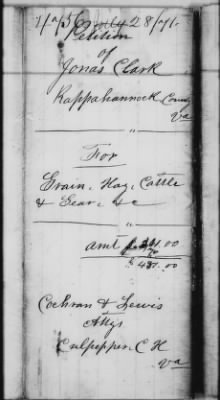 28/71.
Petition
of
Jonas Clark
Rappahannock Coun
Va
"
For
Grain, Hay, Cattle
& Gear, &c
"
amt
$ 487.00
Cochran & Lewis
Attys
Culpepper C. H
Va